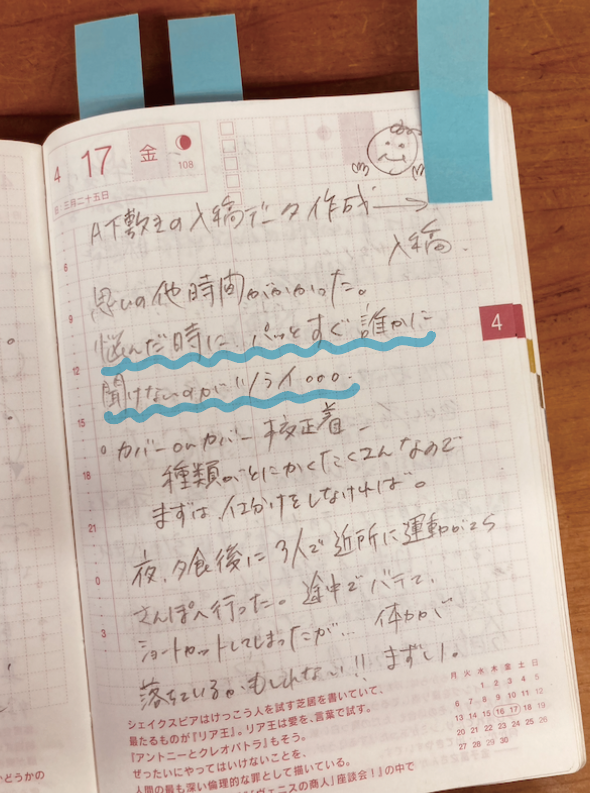 4 17 金
108
三月二十五日
A下敷きの入稿データ作成→
入稿.
思いの他時間がかかった。
悩んだ時に、パッとすぐ誰かに
聞けないのがツライ。。。
4
カバーonカバー 校正着–
種類ごとにかくたくさんなので
まずは、仕分けをしなければ。
夜、夕食後に3人で近所に運動がてら
さんぽへ行った。途中でバテて、
ショートカットしてしまったが… 体力が
落ちているかもしれない!! まずい。
6
9
12
15
18
21
0
3
シェイクスピアはけっこう人を試す芝居を書いていて、
最たるものが『リア王』。リア王は愛を、言葉で試す。
『アントニーとクレオパトラ』もそう。
ぜったいにやってはいけないことを、
人間の最も深い倫理的な罪として描いている。
『ヴェニスの商人』座談会!」の中で
月 火 水 木 金 土 日
1 2 3 4 5
6 7 8 9 10 11 12
13 14 15 16 17 18 19
20 21 22 23 24 25 26
27 28 29 30
かどうかの